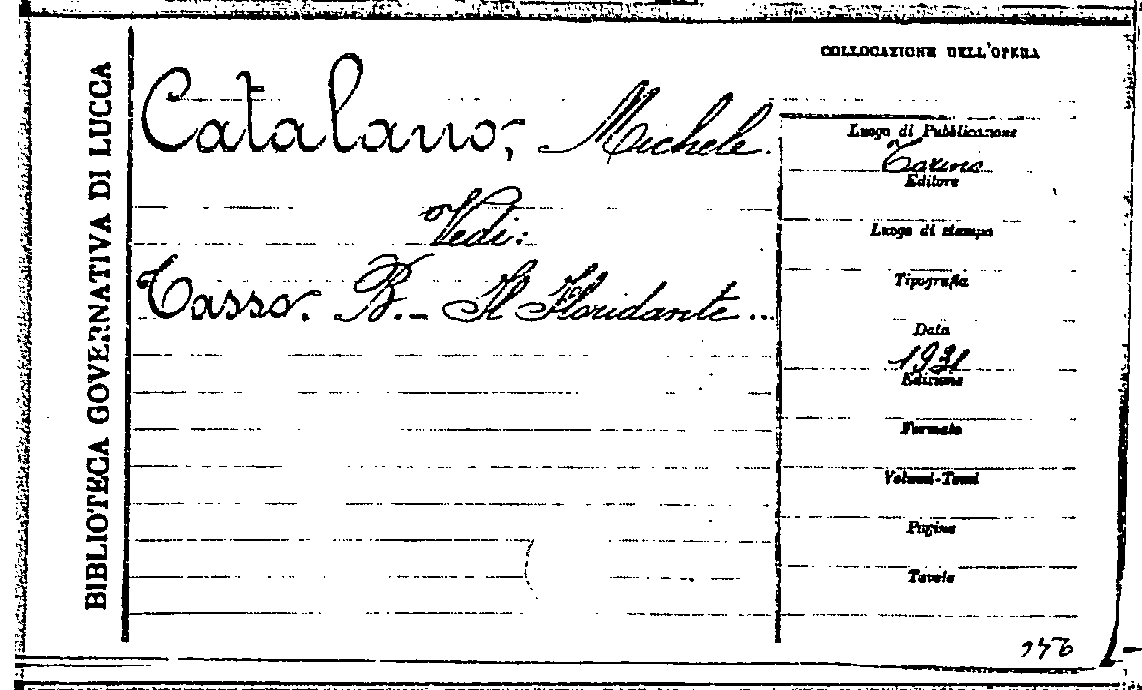 BIBLIOTECA GOVERNATIVA DI LUCCA
Catalano, Michele.
Vedi:
Tasso. B. - Il Floridante...
COLLOCAZIONE DELL'OPERA
Luogo di Pubblicazione
Torino
Editore
Luogo di stampa
Tipografia
Data
1931
Edizione
Formato
Volumi-Tomi
Pagine
Tavole